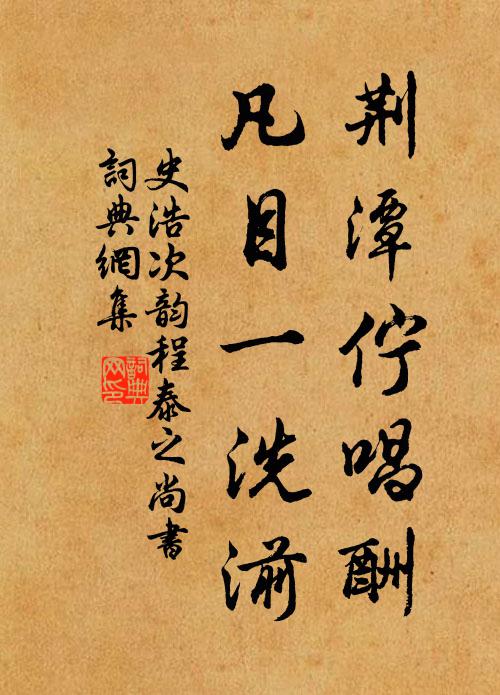 荆潭佇唱酬
凡目一洗湔
史浩次韵程泰之尚書
詞典網集
詞典网印